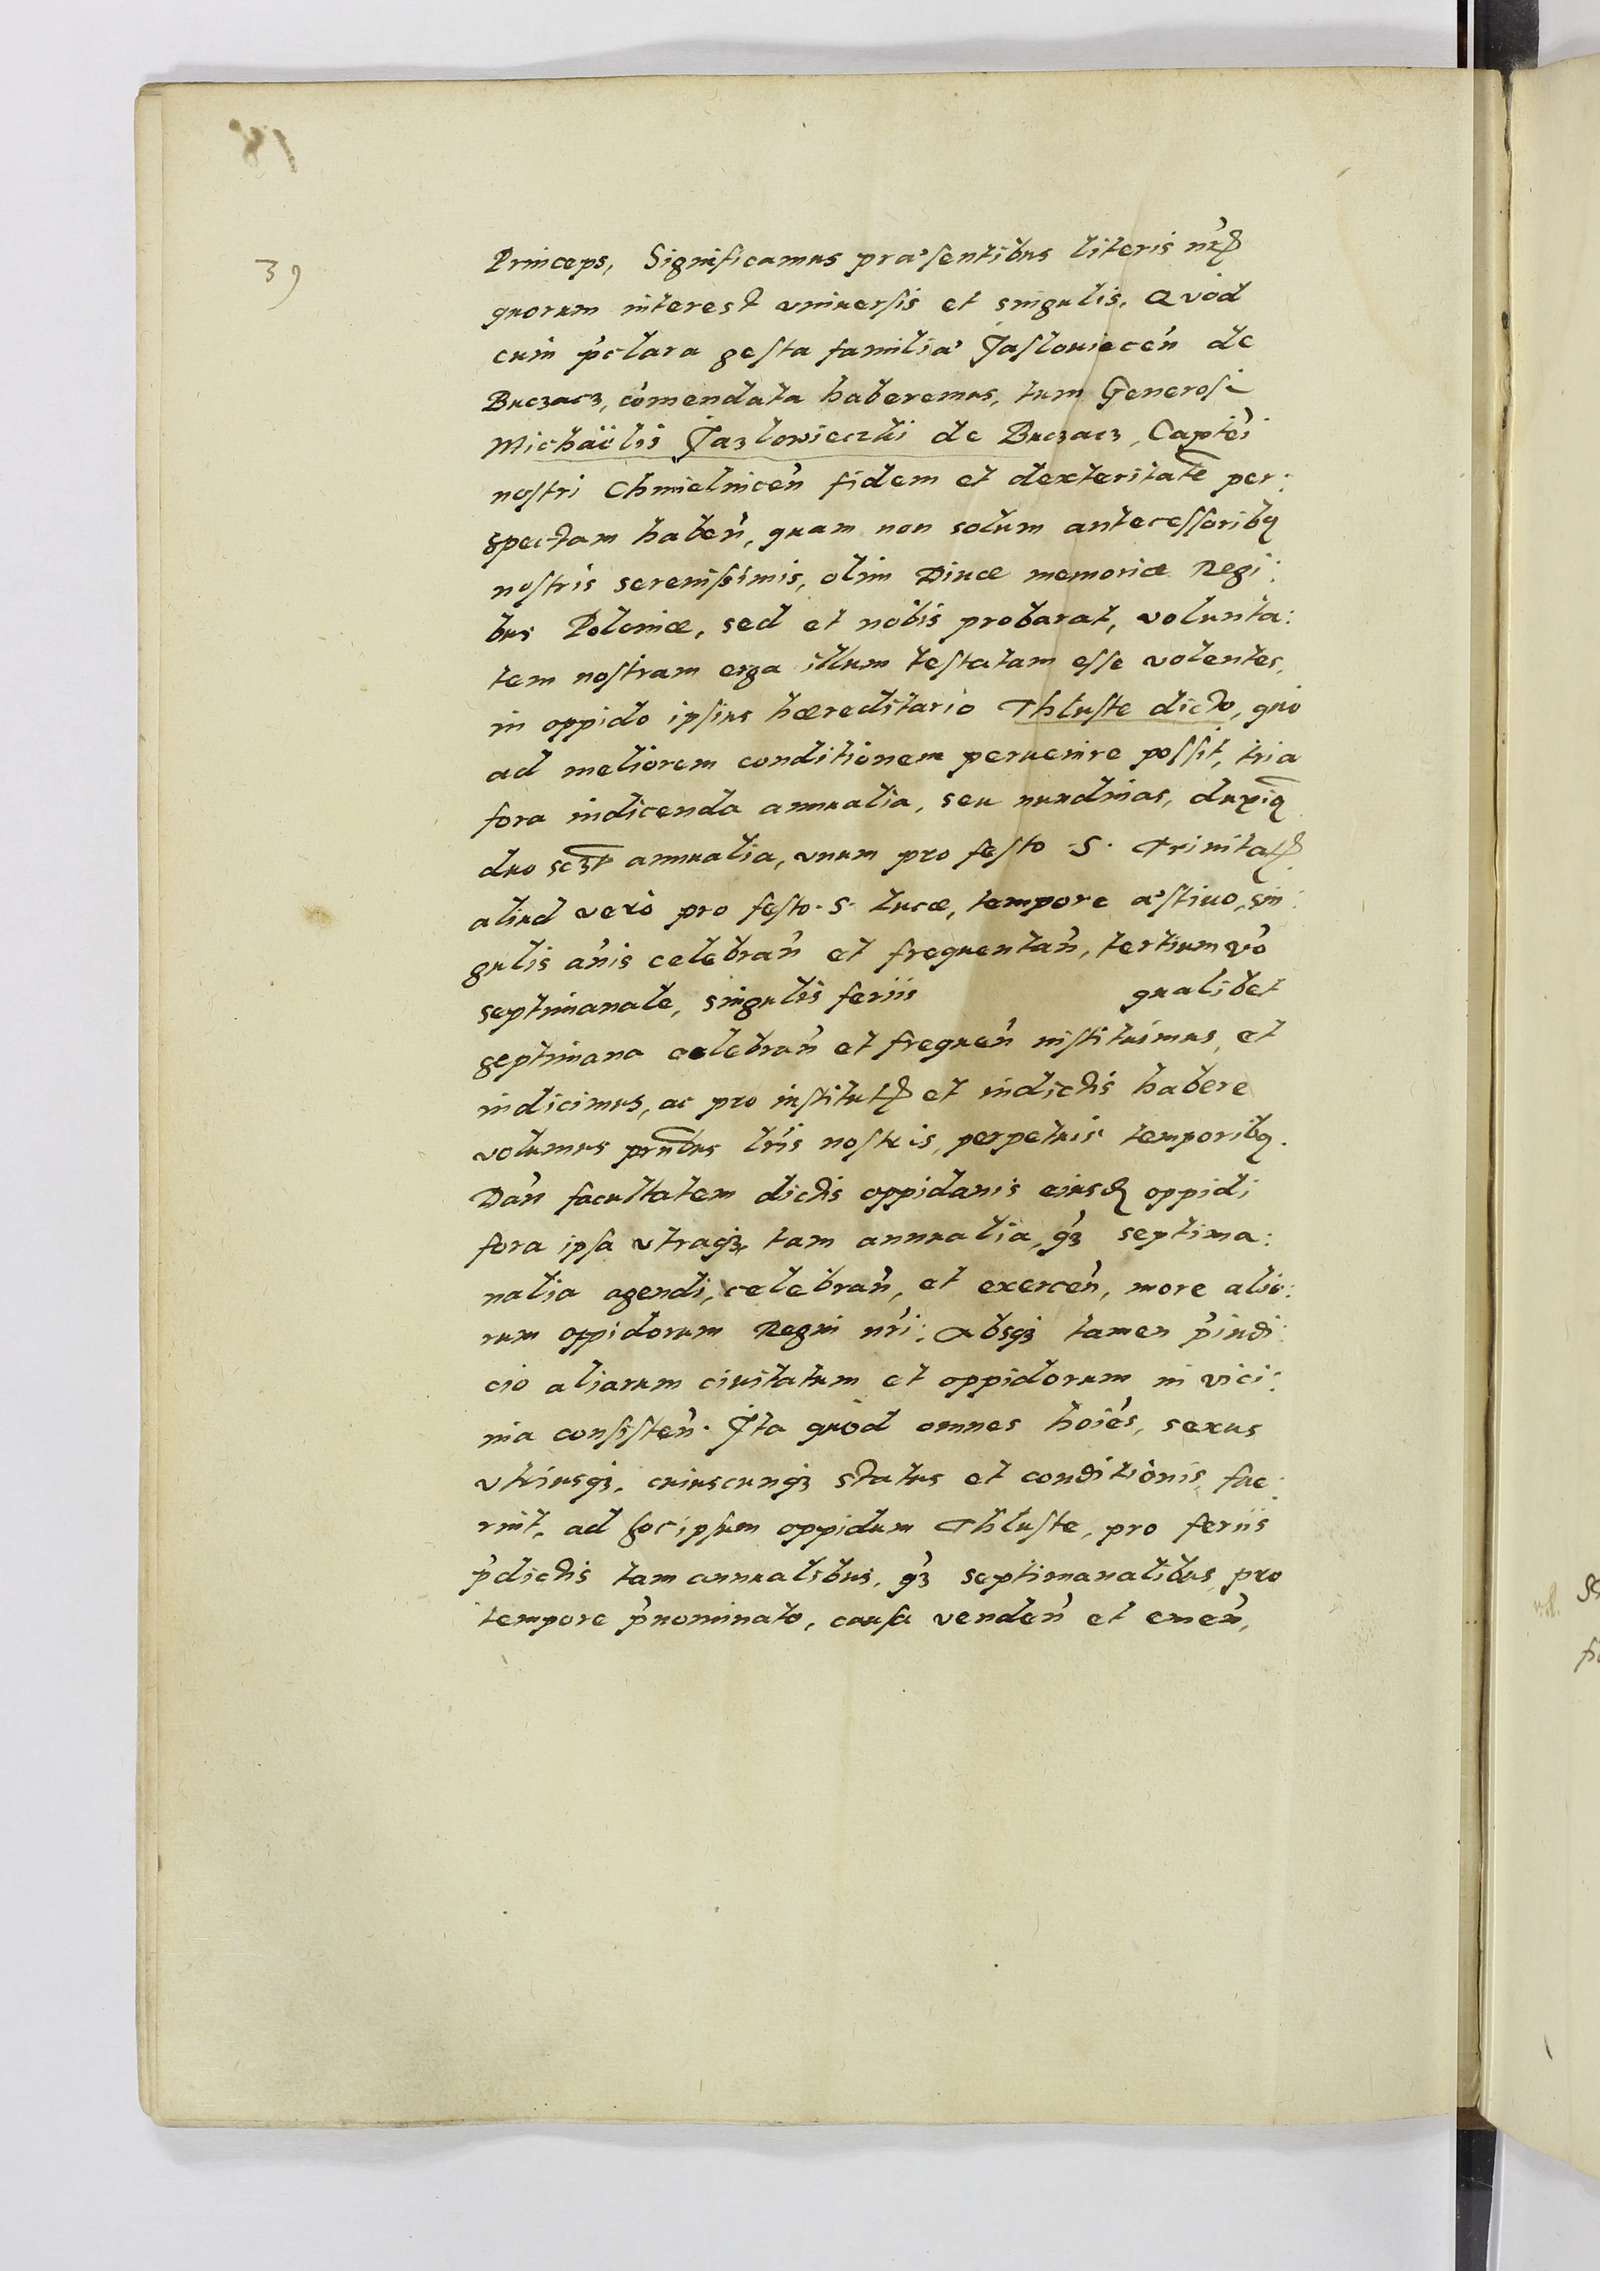 39
Princeps, Significamus præsentibus literis nr̃is
quorum interest vniuersis et singulis, Quòd
cum p̃clara gesta familiæ Jaslouiecen̉ de
Buczacz, com̃endata haberemus, tum Generosi
Michaëlis Jazlowieczki de Buczacz, Captẽi
nostri Chmielnicen̉ fidem et dexteritatẽ per:
spectam haben̉, quam non solum antecessoribꝫ
nostris serenissimis, olim Diuæ memoriæ Regi:
bus Poloniæ, sed et nobis probarat, volunta:
tem nostram erga illum testatam esse volentes,
in oppido ipsius hæreditario Thluste dicto, quo
ad meliorem conditionem peruenire possit, tria
fora indicenda annualia, seu nundinas,
duo annualia, vnum pro festo S. Trinitatis
aliud verò pro festo S. Lucæ, tempore æstiuo, sin:
gulis an̉is celebran̉ et frequentan̉, tertium vỏ
septimanale, singulis feriis qualibet
septimana celebran̉ et frequen̉ instituimus, et
indicimus, ac pro institutis et indictis habere
volumus pr̃ntibus lr̃is nostris, perpetuis temporibꝫ.
Dan̉ facultatem dictis oppidanis eiusd̃ oppidi
fora ipsa vtraqꝫ, tam annualia, qꝫ̉ septima:
nalia agendi, celebran̉, et exercen̉, more alio:
rum oppidorum Regni nr̃i: Absqꝫ tamen p̃iudi:
cio aliarum ciuitatum et oppidorum in vici:
nia consisten̉. Ita quòd omnes hoĩes, sexus
vtriusqꝫ, cuiuscunqꝫ status et conditionis, fue:
rint, ad hoc ipsum oppidum Thluste, pro feriis
p̃dictis tam annualibus, qꝫ̉ septimanalibus, pro
tempore p̃nominato, causa venden̉ et emen̉,